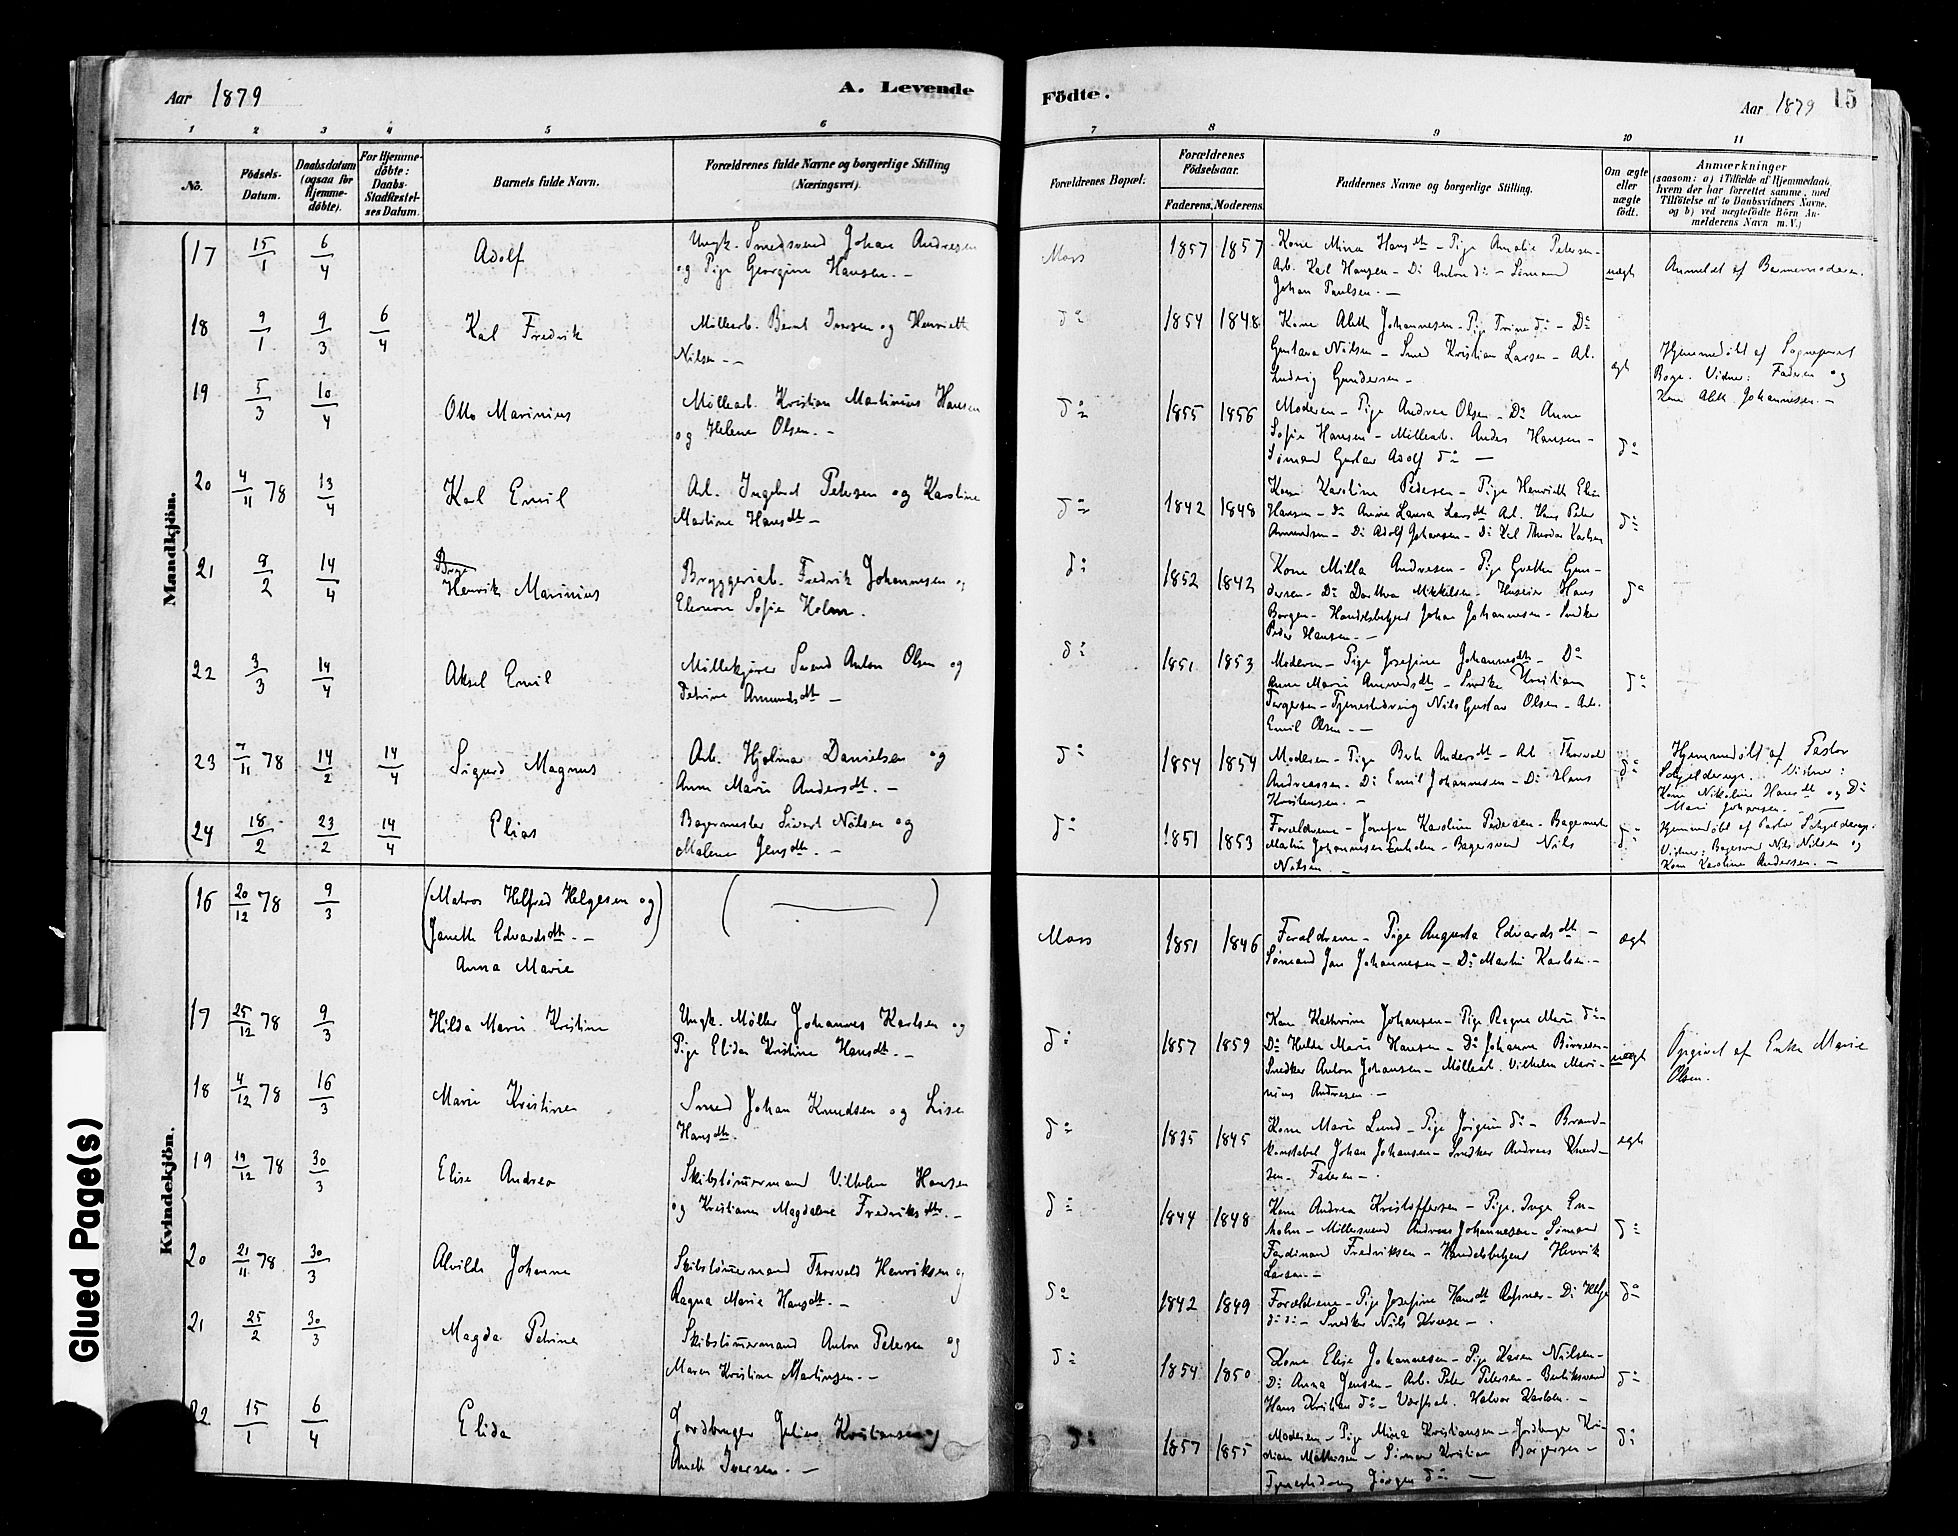 Aar 1879
A. Levende
Födte.
Aar 1879
15
1 2 3 4 5 6
7 8 9 10 11
No.
Födsels-
Datum.
Daabsdatum
(ogsaa for
Hjemme-
döbte).
For Hjemme-
döbte:
Daabs-
Stadfæstel-
ses Datum.
Barnets fulde Navn.
Forældrenes fulde Navne og borgerlige Stilling
(Næringsvei).
Forældrenes Bopæl.
Forældrenes
Födselsaar.
Faderens.
Moderens.
Faddernes Navne og borgerlige Stilling.
Om ægte
eller
uægte
födt.
Anmærkninger
(saasom: a) i Tilfælde af Hjemmedaab,
hvem der har forrettet samme, med
Tilföielse af to Daabsvidners Navne,
og b) ved uægtefödte Börn An-
melderens Navn m. V.)
Mandkjön.
17 15/1 6/4 Adolf
Ungk. Smedsvend Johan Andresen
og Pige Georgine Hansen. -
Moss 1857 1857
Kone Mina Hansdtr - Pige Amalie Petersen -
Arb. Karl Hansen - Do Anton do - Sømand
Johan Paulsen. -
uægte
Anmeldt af Barnemoderen.
18 9/1 9/3 6/4 Karl Fredrik
Møllearb. Bernt Iversen og Henriette
Nilsen. -
do 1854 1848
Kone Aleth Johannesen - Pige Trine do - Do
Gustava Nilsen - Smed Kristian Larsen - Arb.
Ludvig Gundersen -
ægt
Hjemmedøbt af Sognepræst
Boge. Vidner: Faderen og
Kone Aleth Johannesen. -
19 5/3 10/4 Otto Marinius
Møllearb. Kristian Martinius Hansen
og Helene Olsen. -
do 1855 1856
Moderen - Pige Andrea Olsen - Do Anne
Sofie Hansen - Møllearb. Anders Hansen -
Sømand Gustav Adolf do -
do
20 4/11 78 13/4 Karl Emil
Arb. Ingebret Petersen og Karoline
Martine Hansdtr -
do 1842 1848
Kone Karoline Pedersen - Pige Henriette Elise
Hansen - Do Anne Laura Larsdtr Arb. Hans Peter
Amundsen - Do Adolf Johansen - Do Karl Theodor Karlsen
do
21 8/2 14/4 Henrik Marinius
Bryggeriarb. Fredrik Johannesen og
Eleonore Sofie Holm.
do 1852 1842
Kone Milla Andresen - Pige Grethe Gun-
dersen - Do Dorthea Mikkelsen - Huseier Hans
Borgen - Handelsbetjent Johan Johannesen - Snedker
Peder Hansen. -
do
22 3/3 14/4 Aksel Emil
Møllekjører Svend Anton Olsen og
Petrine Amundsdtr -
do 1851 1853
Moderen - Pige Josefine Johannesdtr - Do
Anne Marie Amundsdtr - Snedker Kristian
Torgersen - Tjenestedreng Nils Gustav Olsen - Arb.
Emil Olsen. -
do
23 7/11 78 14/2 14/4 Sigurd Magnus
Arb. Hjalmar Danielsen og
Anne Marie Andersdtr. -
do 1854 1854
Moderen - Pige Berte Andersdtr - Arb. Thorvald
Andreassen - Do Emil Johannesen - Do Hans
Kristensen. -
do
Hjemmedøbt af Pastor
Schjelderup. Vidner:
Kone Nikoline Hansdtr og Do
Marie Johansen. -
24 18/2 23/2 14/4 Elias
Bagermester Sivert Nilsen og
Malene Jensdtr. -
do 1851 1853
Forældrene - Jomfru Karoline Pedersen - Bagermester
Martin Johannesen Enholm - Bagersvend Nils
Nilsen. -
do
Hjemmedøbt af Pastor Schjelderup.
Vidner: Bagersvend Nils Nilsen og
Kone Karoline Andersen. -
Kvindekjön.
16 20/12 78 9/3
(Matros Helfred Helgesen og
Janette Edvardsdtr. -)
Anna Marie
( - )
Moss 1851 1846
Forældrene - Pige Augusta Edvardsdtr -
Sømand Jan Johannesen - Do Martin Karlsen. -
ægt
17 25/12 78 9/3 Hilda Marie Kristine
Ungk. Møller Johannes Karlsen og
Pige Elida Kristine Hansdtr. -
do 1857 1859
Kone Kathrine Johansen - Pige Ragna Marie do -
Do Hulda Marie Hansen - Do Johanne
Snedker Anton Johansen - Møllearb. Vilhelm Mari-
nius Andresen. -
uægt
Opgivet af Enke Marie
Olsen.
18 4/12 78 16/3 Marie Kristine
Smed Johan Knudsen og Lise
Hansdtr.
do 1835 1845
Kone Marie Lund - Pige Jørgine do - Brand-
konstabel Johan Johansen - Snedker Andreas Knud-
sen - Faderen -
ægt
19 19/12 78 30/3 Elise Andrea
Skibstømmermand Vilhelm Hansen
og Kristiane Magdalene Fredriksdtr. -
do 1844 1848
Kone Andrea Kristoffersen - Pige Inga En-
holm - Møllersvend Andreas Johannesen - Sømand
Ferdinand Fredriksen - Handelsbetjent Henrik
Larsen -
do
20 21/11 78 30/3 Alvilde Johanne
Skibstømmermand Thorvald Henriksen og
Ragna Marie Hansdtr. -
do 1842 1849
Forældrene - Pige Josefine Hansdtr - Do Helga
do do - Snedker Nils Kruse -
do
21 25/2 30/3 Magda Petrine
Skibstømmermand Anton Petersen og
Maren Kristine Martinsen. -
do 1854 1850
Kone Elise Johannesen - Pige Karen Nilsen -
Do Anna Jensen - Arb. Peter Petersen -
Hans Kristian do - Værftsarb. Halvor Karlsen. -
do
22 15/1 6/4 Elida
Jordbruger Julius Kristiansen og
Aneth Iversen. -
do 1857 1855
Moderen - Pige Mina Kristiansen - Jordbruger Kri-
stian Mathisen - Sømand Kristian Borgersen -
Tjenestedreng Jørgen do -
do
Glued Page(s)